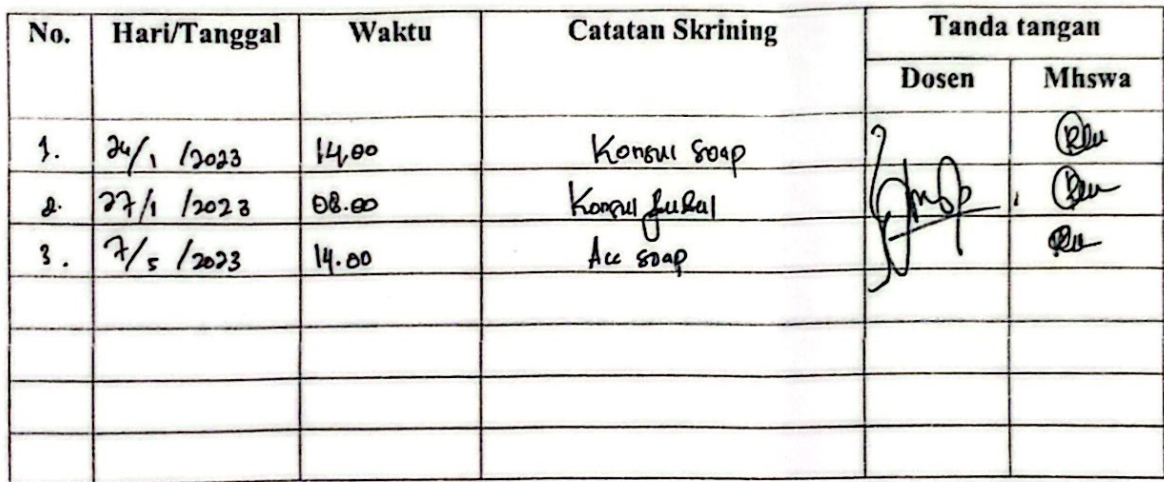 No. Hari/Tanggal Waktu Catatan Skrining Tanda tangan
Dosen Mhswa
1. 24/1 /2023 14.00 Konsul soap
2. 27/1 /2023 08.00 Konsul
3. 7/5 /2023 14.00 Acc soap